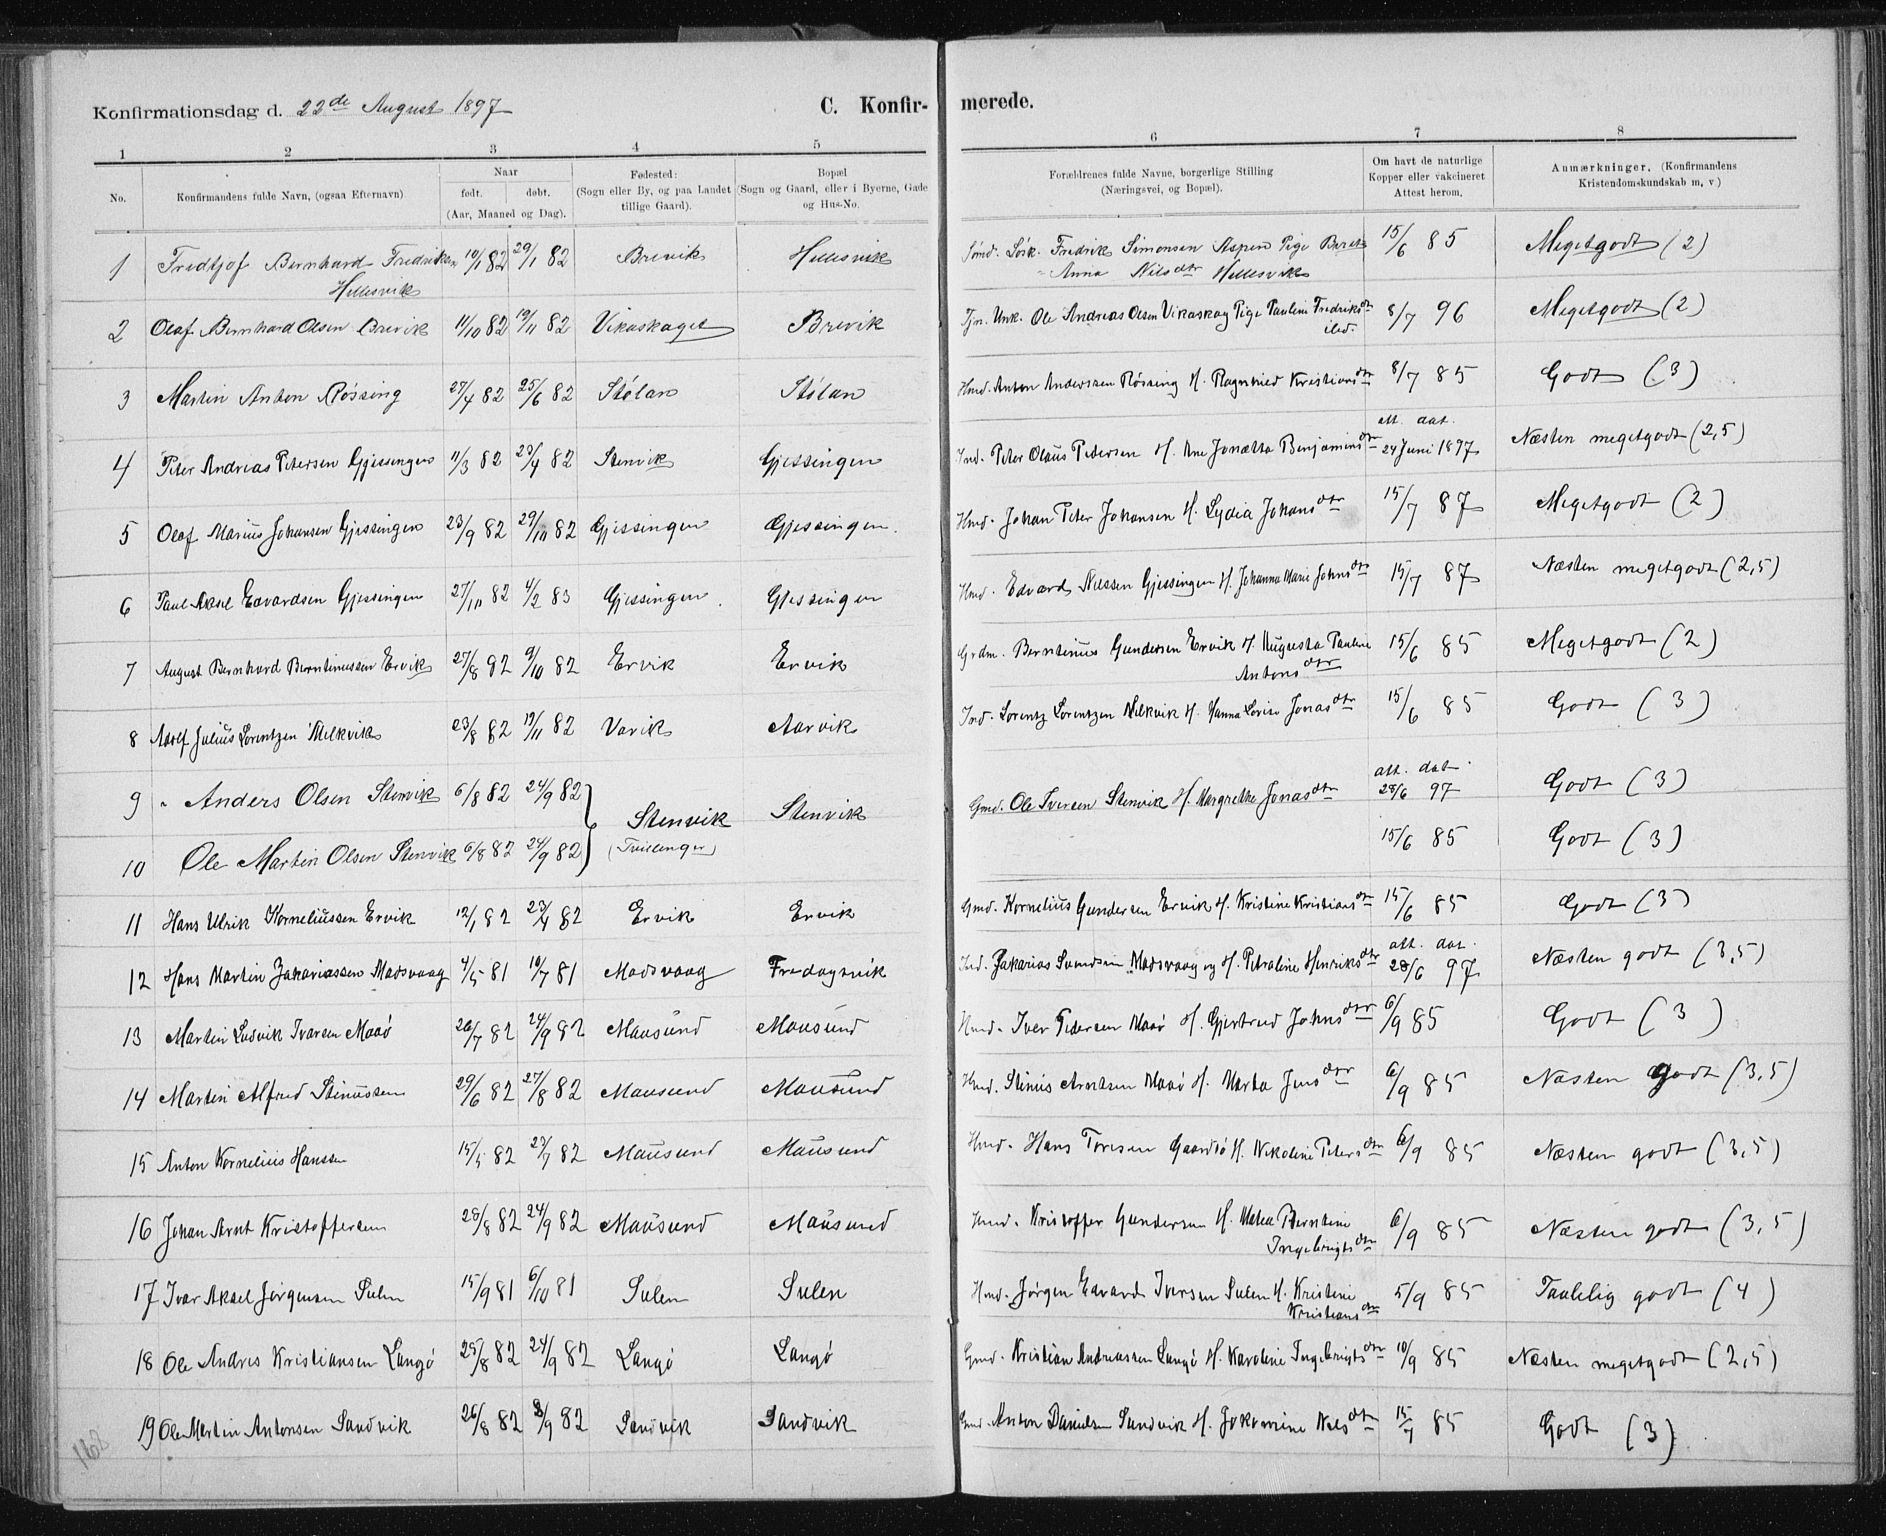 Konfirmationsdag d. 22de August 1897 C. Konfir- merede.
1 2 3 4 5 6 7 8
No. Konfirmandens fulde Navn, (ogsaa Efternavn) Naar født. døbt. (Aar, Maaned og Dag). Fødested: (Sogn eller By, og paa Landet tillige Gaard). Bopæl (Sogn og Gaard, eller i Byerne, Gade og Hus-No. Forældrenes fulde Navne, borgerlige Stilling (Næringsvei, og Bopæl). Om havt de naturlige Kopper eller vakcineret Attest herom. Anmærkninger. (Konfirmandens Kristendomskundskab m. v)
1 Fredtjof Bernhard Fredriksen 10/1 82 29/1 82 Brevik Hellesvik Fredrik Simonsen Aspen Pige 15/6 85 Megetgodt (2)
Hellesvik Anna Nilsdtr Hellesvik
2 Olaf Bernhard Olsen Brevik 11/10 82 19/11 82 Vikaskaget Brevik Tjn. Unk. Ole Andreas Olsen Vikaskag Pige Pauline Fredriksdtr 8/7 96 Megetgodt (2)
ibd.
3 Martin Anton Røssing 27/4 82 25/6 82 Stølan Stølan Hmd. Anton Anderssen Røssing H. Ragnhild Kristiansdtr 8/7 85 Godt (3)
4 Peter Andreas Petersen Gjessingen 11/3 82 23/4 82 Stenvik Gjessingen Ind. Peter Olaus Pedersen H. Ane Jonetta Benjaminsdtr att. dat. 24 Juni 1897 Næsten megetgodt (2,5)
5 Olaf Marius Johansen Gjessingen 23/9 82 29/10 82 Gjessingen Gjessingen. Hmd. Johan Peter Johansen H. Lydia Johansdtr 15/7 87 Megetgodt (2)
6 Paul Aksel Edvardsen Gjessingen 27/10 82 4/2 83 Gjessingen. Gjessingen Hmd. Edvard Nilssen Gjessingen H. Johanna Marie Johnsdtr 15/7 87 Næsten megetgodt (2,5)
7 August Bernhard Berntinussen Ervik 27/8 82 9/10 82 Ervik Ervik Grdm. Berntinus Gundersen Ervik H. Augusta Pauline 15/6 85 Megetgodt (2)
Antonsdtr
8 Adolf Julius Lorentzen Melkvik 23/8 82 19/11 82 Varvik Aarvik Ind. Lorentz Lorentzen Melkvik H. Hanna Lovise Jonasdtr 15/6 85 Godt (3)
9 Anders Olsen Stenvik 6/8 82 24/9 82 Stenvik Stenvik Gmd. Ole Iversen Stenvik H. Margrethe Jonasdtr att. dat. 28/6 97 Godt (3)
10 Ole Martin Olsen Stenvik 6/8 82 24/9 82 (Tvillinger) 15/6 85 Godt (3)
11 Hans Ulrik Korneliussen Ervik 12/1 82 23/4 82 Ervik Ervik Gmd. Kornelius Gundersen Ervik H. Kristine Kristiansdtr 15/6 85 Godt (3)
12 Hans Martin Zakariassen Madsvaag 4/5 81 10/7 81 Madsvaag Fredagsvik Ind. Zakarias Svendsen Madsvaag og H. Petroline Henriksdtr att. dat. 28/6 97 Næsten godt (3,5)
13 Martin Ludvik Iversen Maaø 26/7 82 24/9 82 Mausund Mausund Hmd. Iver Pedersen Maaø H. Gjertrud Johnsdtr 6/9 85 Godt (3)
14 Martin Alfred Stinussen 29/6 82 27/8 82 Mausund Mausund Hmd. Stinus Arntsen Maaø H. Marta Jensdtr 6/9 85 Næsten godt (3,5)
15 Anton Kornelius Hanssen 15/5 82 23/7 82 Mausund Mausund Hmd. Hans Toresen H. Nikoline Petersdtr 6/9 85 Næsten godt (3,5)
16 Johan Arnt Kristoffersen 28/8 82 24/9 82 Mausund Mausund Hmd. Kristoffer Gundersen H. Matea Berntine 6/9 85 Næsten godt (3,5)
Ingebrigtsdtr
17 Ivar Aksel Jørgensen Sulen 15/9 81 6/10 81 Sulen Sulen Hmd. Jørgen Edvard Iversen Sulen H. Kristine 5/9 85 Taalelig godt (4)
Kristiansdtr
18 Ole Andres Kristiansen Langø 25/8 82 24/9 82 Langø Langø Gmd. Kristian Andreassen Langø H. Karoline Ingebrigtsdtr 10/9 85 Næsten megetgodt (2,5)
19 Ole Martin Antonsen Sandvik 26/8 82 3/9 82 Sandvik Sandvik Gmd. Anton Danielsen Sandvik H. Jakomine Nilsdtr 15/7 85 Godt (3)
168